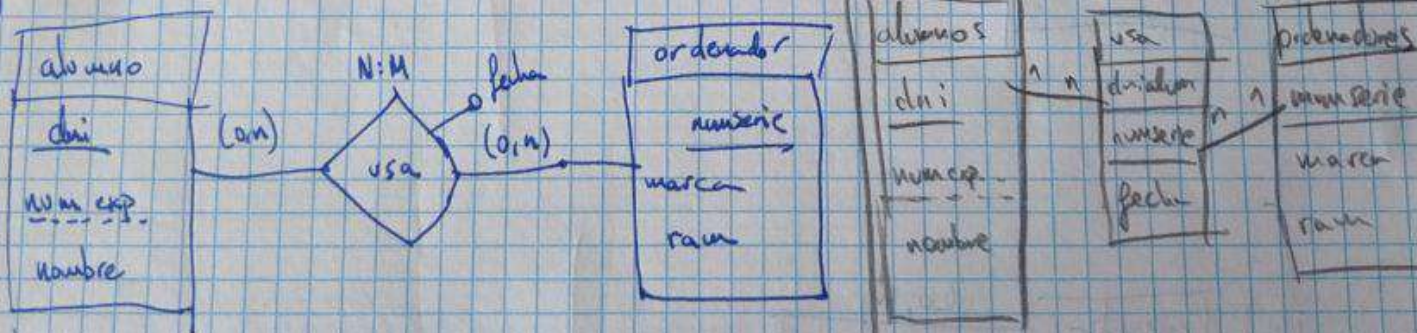 alumno
dni
num exp
nombre
(0,n)
N:M
usa
fecha
(0,n)
ordenador
numserie
marca
ram
alumnos
dni
numexp
nombre
1
n
usa
dnialum
numserie
fecha
n
1
ordenadores
numserie
marca
ram